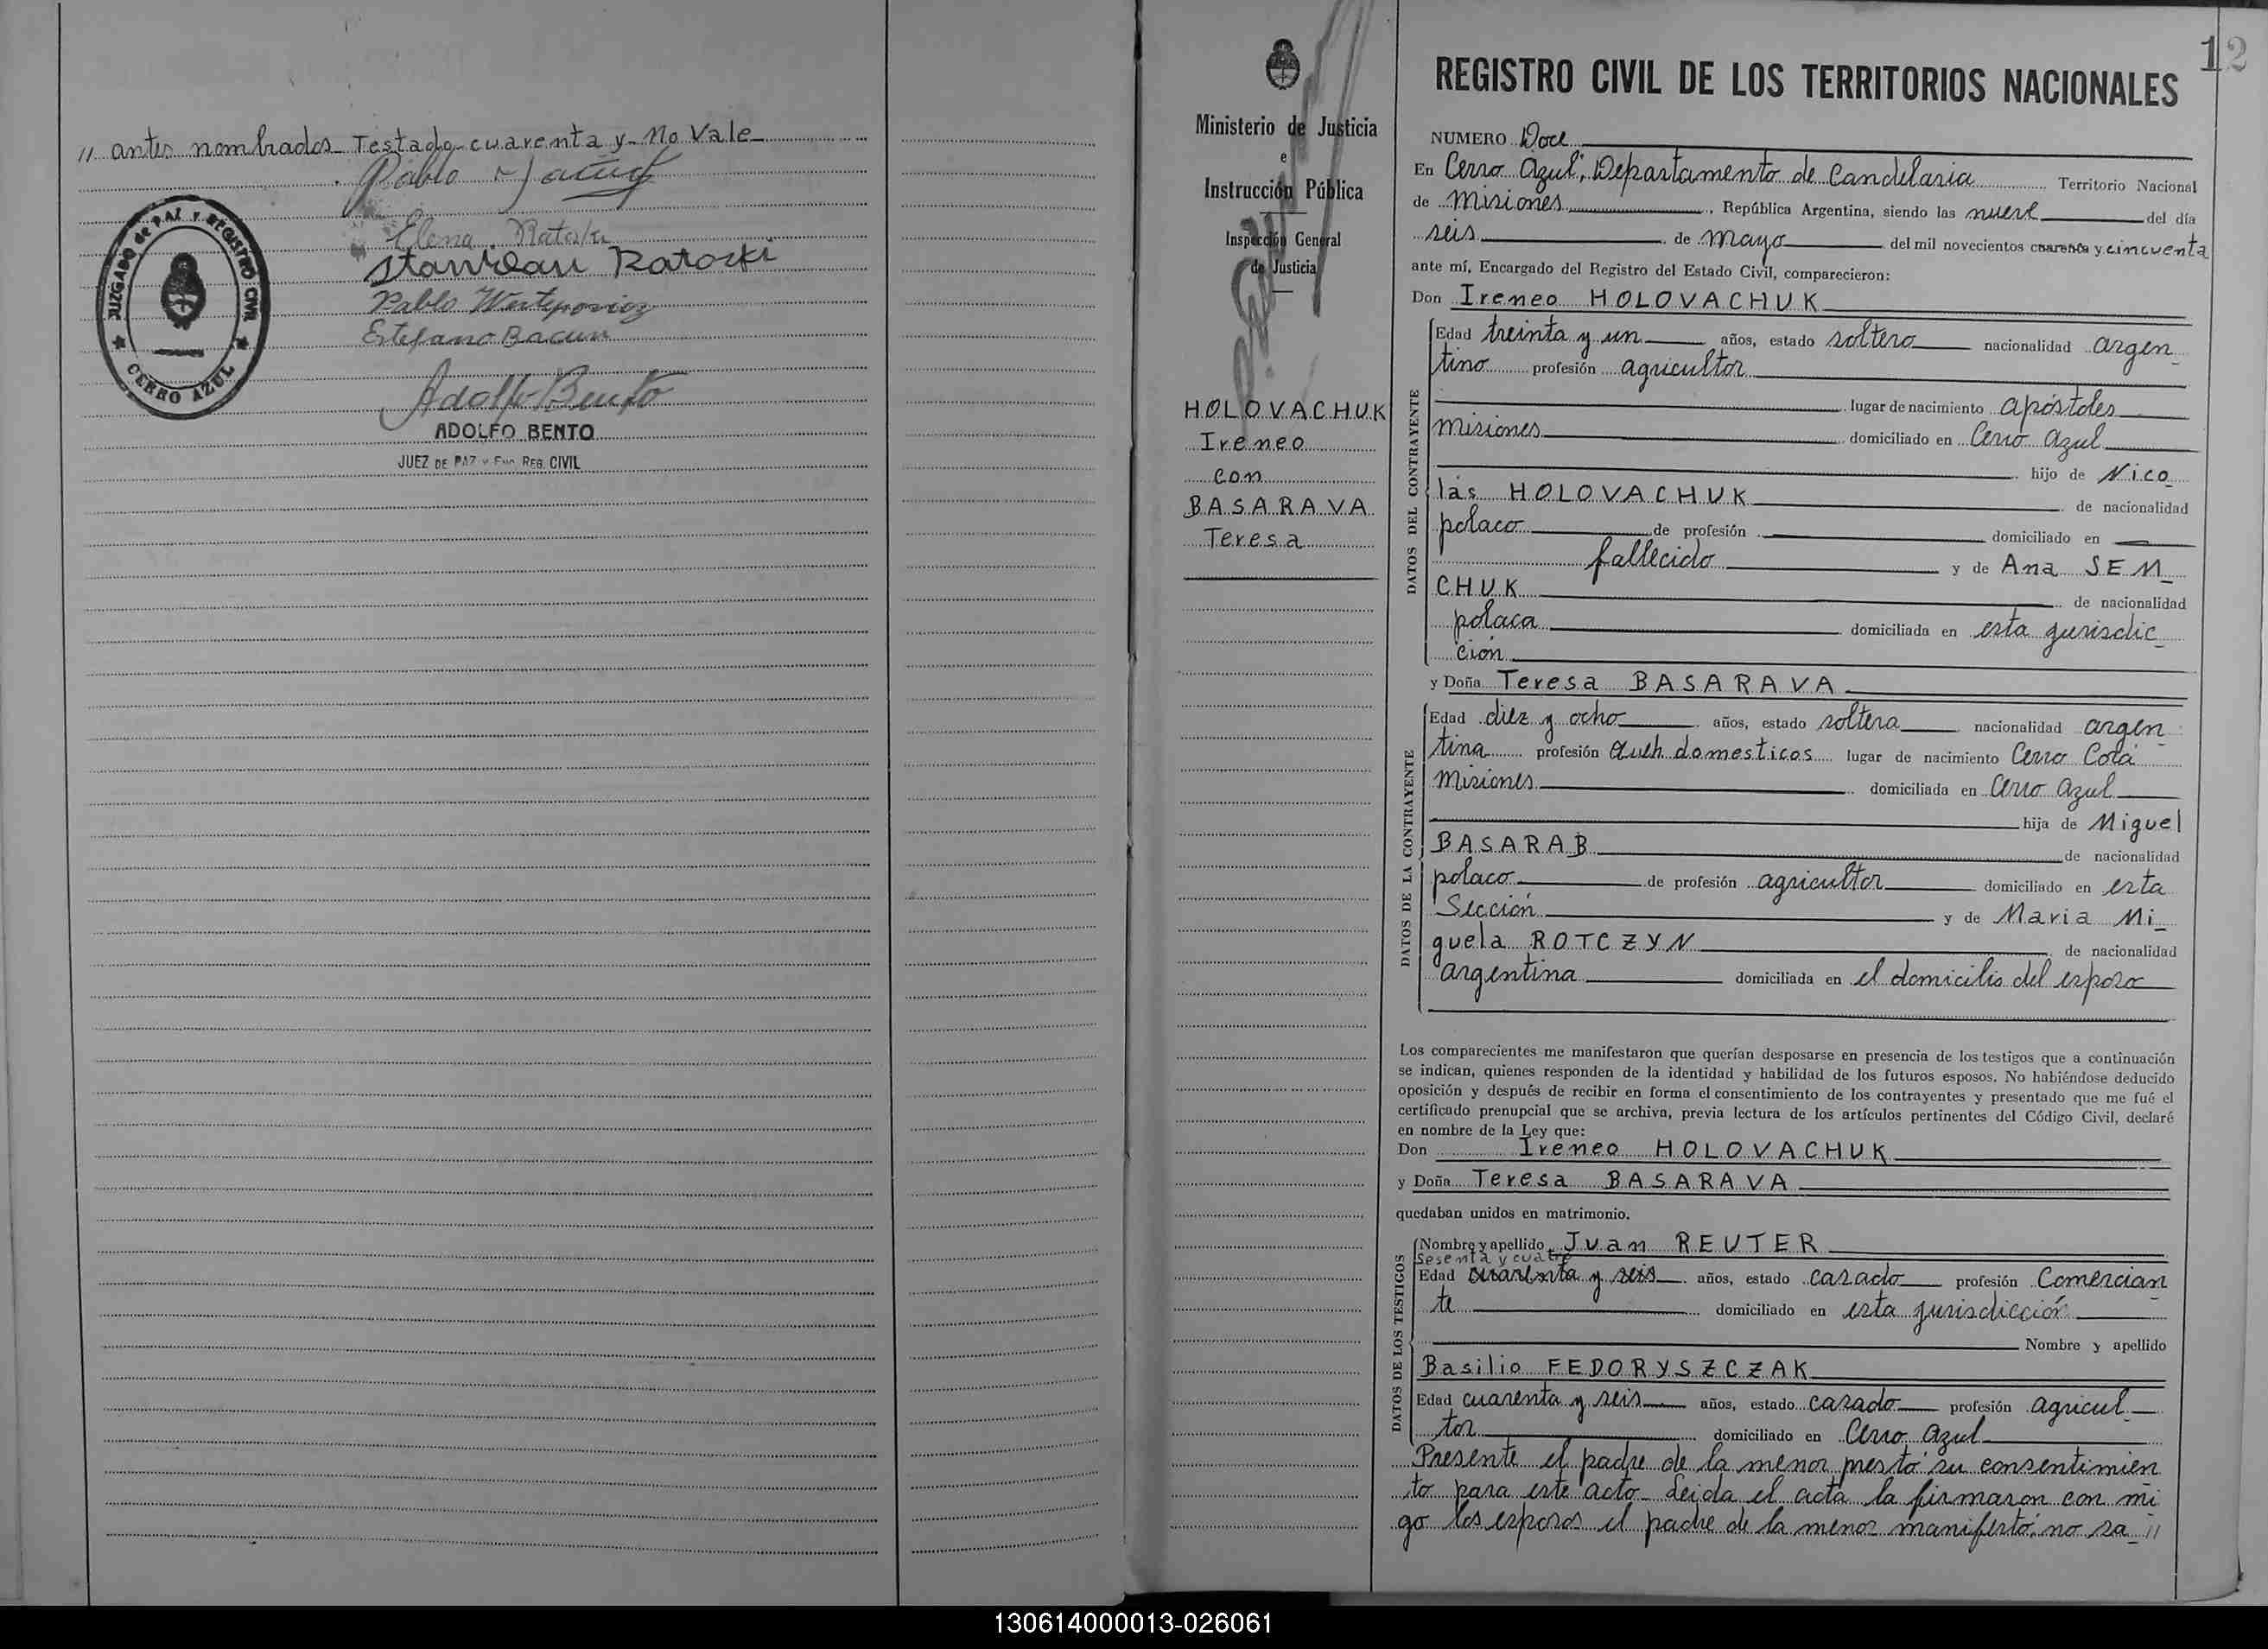 // antes nombrados_ Testado_cuarenta y_ No Vale_
Pablo
Elena Ratoski
Stanislau Ratoski
Pablo Werteporvioz
Estefano Bacun
Adolfo Bento
ADOLFO BENTO
JUEZ DE PAZ Y ENC REG. CIVIL
JUZGADO de PAZ Y REGISTRO CIVIL
★ CERRO AZUL ★
Ministerio de Justicia
e
Instrucción Pública
Inspección General
de Justicia
HOLOVACHUK
Ireneo
con
BASARAVA
Teresa
12
REGISTRO CIVIL DE LOS TERRITORIOS NACIONALES
NUMERO Doce
En Cerro Azul, Departamento de Candelaria Territorio Nacional
de Misiones, República Argentina, siendo las nueve del día
seis de mayo del mil novecientos cuarenta y cincuenta
ante mí, Encargado del Registro del Estado Civil, comparecieron:
Don Ireneo HOLOVACHUK
DATOS DEL CONTRAYENTE
Edad treinta y un años, estado soltero nacionalidad argen_
tino profesión agricultor
lugar de nacimiento apóstoles
misiones domiciliado en Cerro Azul
hijo de Nico_
lás HOLOVACHUK de nacionalidad
polaco de profesión domiciliado en
fallecido y de Ana SEM_
CHUK de nacionalidad
polaca domiciliada en esta jurisdic_
ción
y Doña Teresa BASARAVA
DATOS DE LA CONTRAYENTE
Edad diez y ocho años, estado soltera nacionalidad argen_
tina profesión queh. domesticos lugar de nacimiento Cerro Corá
Misiones domiciliada en Cerro Azul
hija de Miguel
BASARAB de nacionalidad
polaco de profesión agricultor domiciliado en esta
Sección y de Maria Mi_
guela ROTCZYN de nacionalidad
argentina domiciliada en el domicilio del esposo
Los comparecientes me manifestaron que querían desposarse en presencia de los testigos que a continuación
se indican, quienes responden de la identidad y habilidad de los futuros esposos. No habiéndose deducido
oposición y después de recibir en forma el consentimiento de los contrayentes y presentado que me fué el
certificado prenupcial que se archiva, previa lectura de los artículos pertinentes del Código Civil, declaré
en nombre de la Ley que:
Don Ireneo HOLOVACHUK
y Doña Teresa BASARAVA
quedaban unidos en matrimonio.
DATOS DE LOS TESTIGOS
Nombre y apellido Juan REUTER
Sesenta y cuatro
Edad cuarenta y seis años, estado casado profesión Comercian_
te domiciliado en esta jurisdicción
Nombre y apellido
Basilio FEDORYSZCZAK
Edad cuarenta y seis años, estado casado profesión agricul_
tor domiciliado en Cerro Azul
Presente el padre de la menor prestó su consentimien
to para este acto_ Leida el acta la firmaron con mi
go los esposos el padre de la menor manifestó no sa_//
130614000013-026061